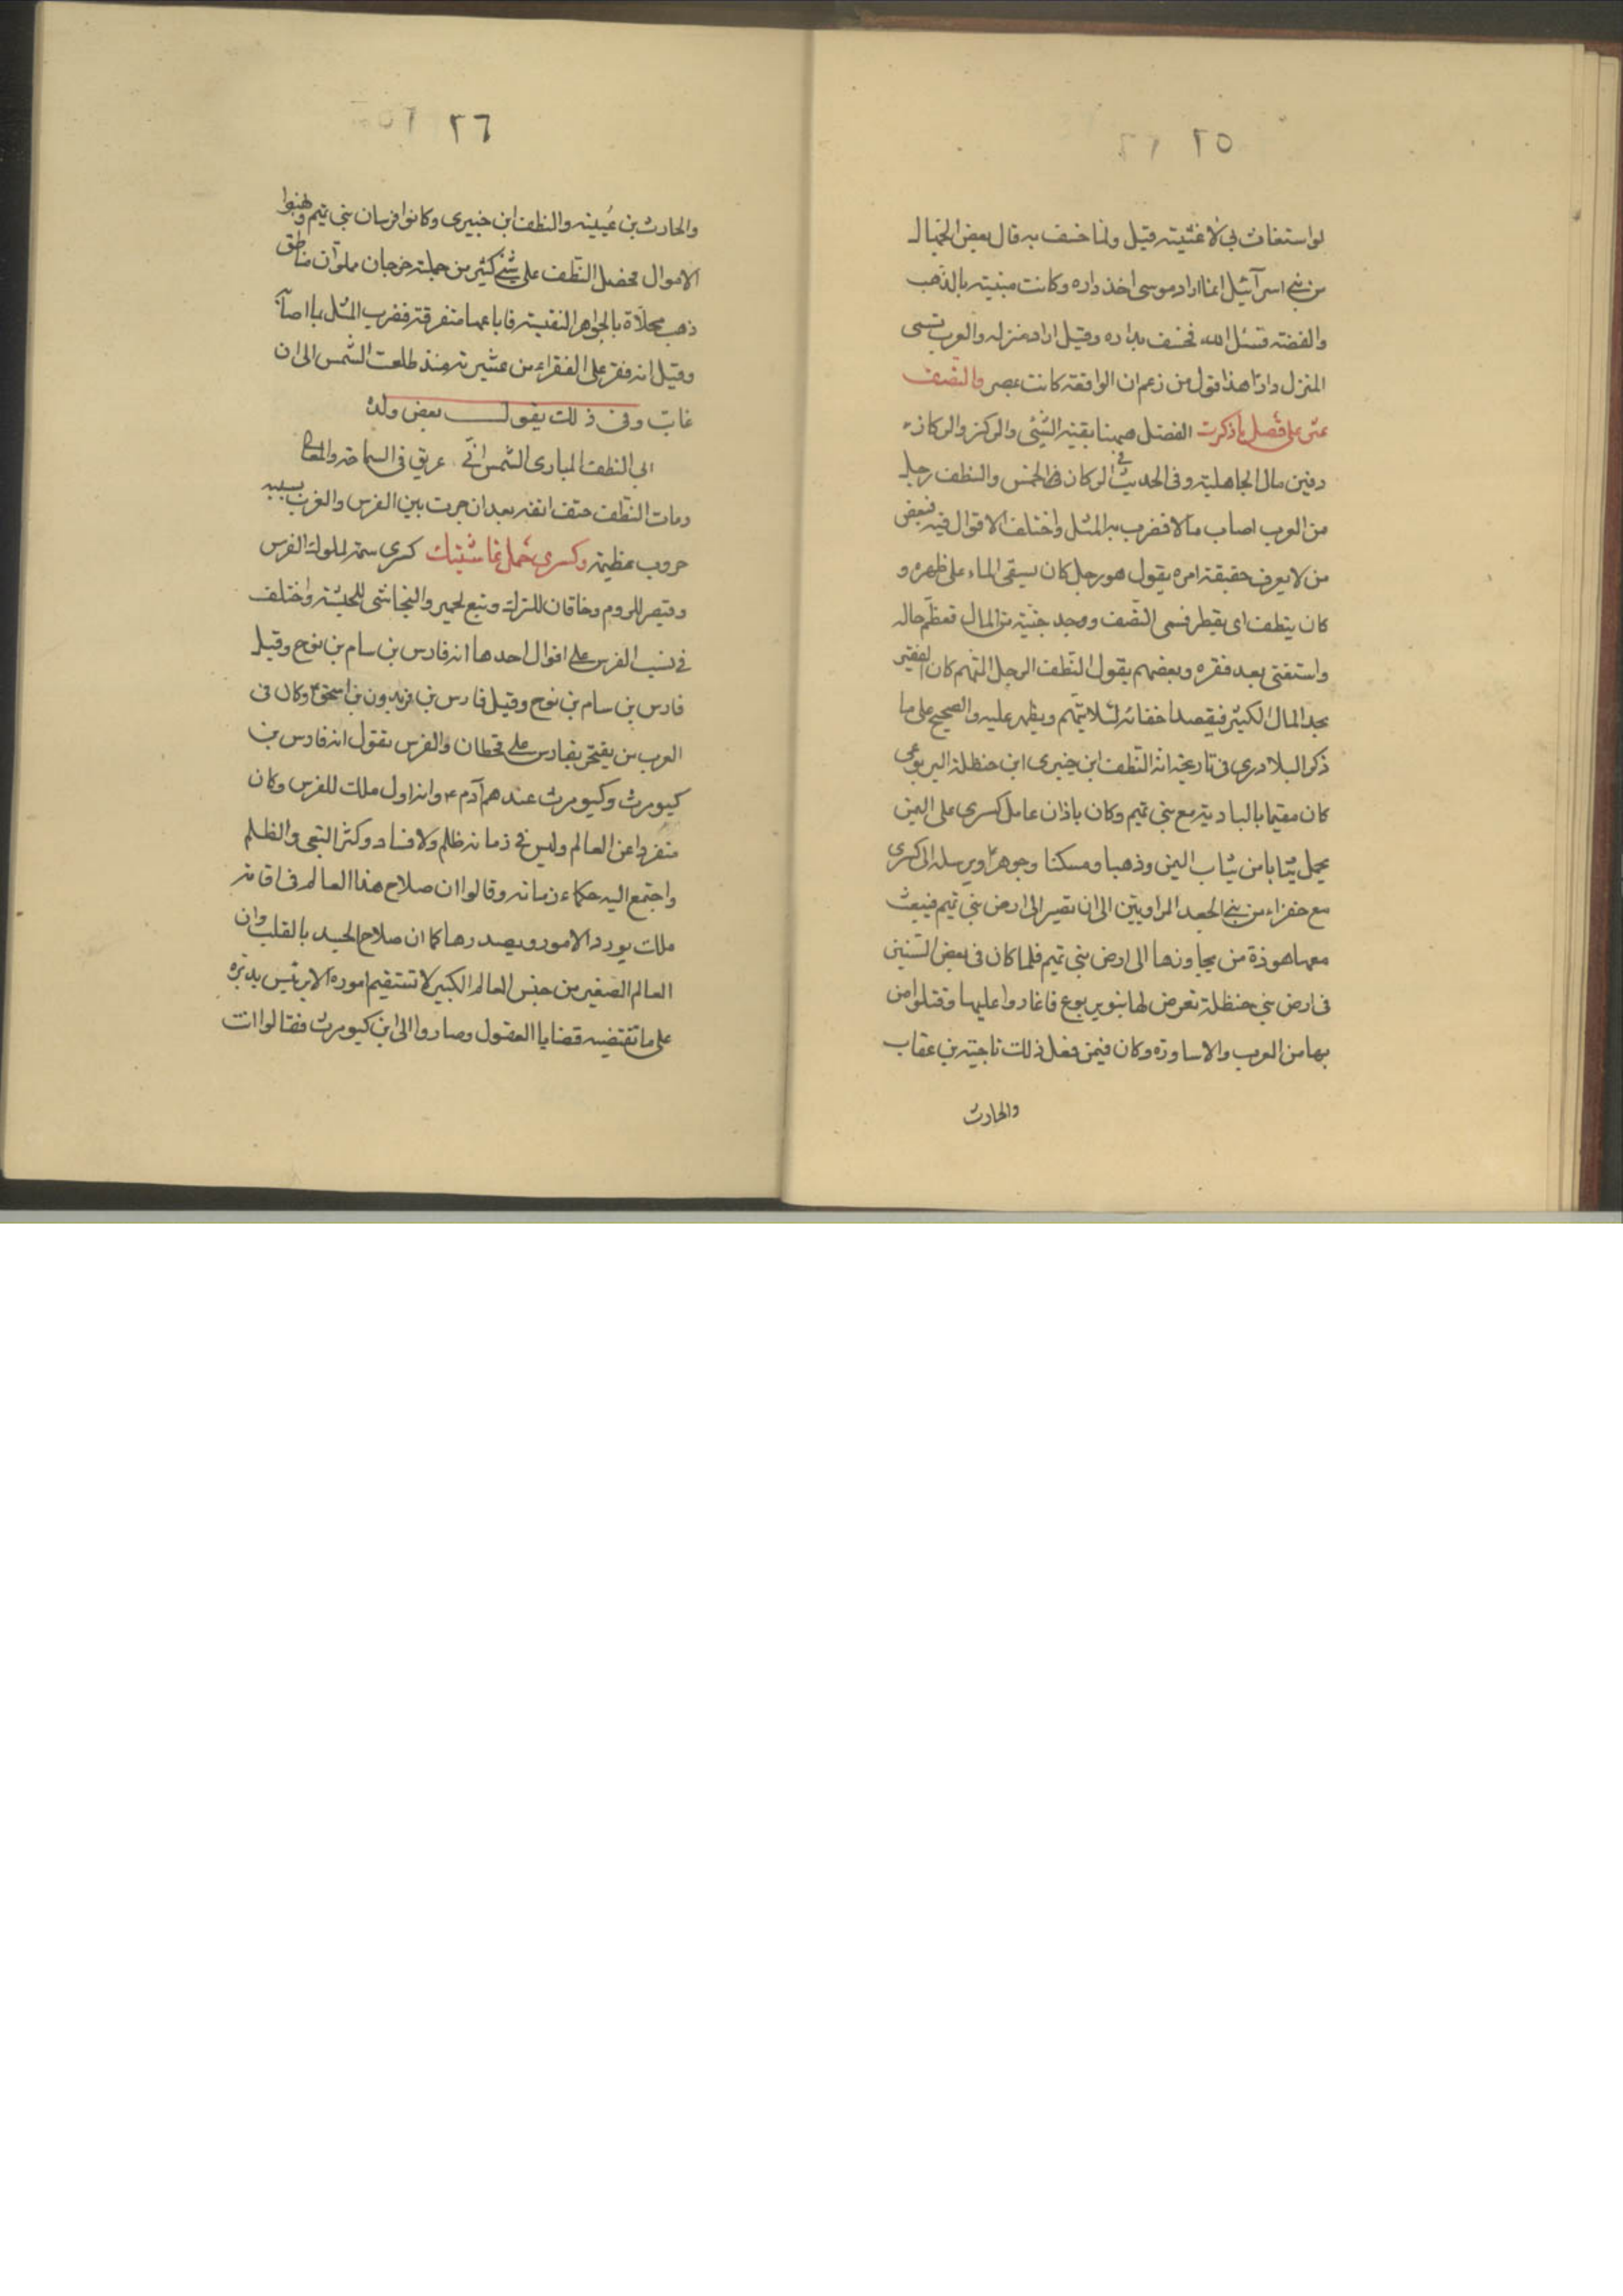 ٢٥
لو استغاث بي لاغثيته قيل ولما خسف به قال بعض الجهال
من بني اسرآئيل انما اراد موسى اخذ داره وكانت مبنيته بالذهب
والفضته فسئل الله فخسف بداره وقيل اراد منزله والعرب تسمى
المنزل دارًا هذا قول من زعم ان الواقعة كانت بمصر والنصف
عثر على فضل ما ذكرت الفضل ههنا بقيته الشيئى والركز والركاز
دفين مال الجاهليته وفى الحديث في الركان الخمس والنطف رجل
من العرب اصاب مالا فضرب به المثل واختلف الاقوال فيه فبعض
من لا يعرف حقيقة امره يقول هو رجل كان يسقى الماء على ظهره و
كان ينطف اى يقطر فسمى النصف ووجد جنيته من المال فعظم حاله
واستغنى بعد فقره وبعضهم يقول النّطف الرجل المتهم كان الفقير
يجد المال الكثير فيقصد اخفائه لئلا يتهم ويظهر عليه والصحيح على ما
ذكر البلادرى فى تاريخه انه النّطف ابن خيبرى ابن حنظلة اليربوعى
كان مقيما بالباديته مع بنى تميم وكان باذان عامل كسرى على اليمن
يحمل ثيابا من ثياب اليمن وذهبا ومسكنا وجوهرًا ويرسله الى كسرى
مع خفراء من بني الجعد المراويتين الى ان تصير الى ارض بنى تميم فيبعث
معها هوذة من يجاوزها الى ارض بنى تميم فلما كان فى بعض السّنين
فى ارض بني حنظلة تعرض لها بنو يربوع فاغاروا عليها وقتلوا من
بها من العرب والاساورة وكان فيمن فعل ذلك ناجيته بن عقاب
والحارث
٢٦
والحارث بن عيينه والنطف ابن خبيرى وكانوا فرسان بنى تميم ونهبوا
الاموال فحصل النّطف على شيئ كثير من جملته خرجان مملوآن مناطق
ذهب محلّاة بالجواهر النفيسته فاباعها متفرقته فضرب المثل بما اصابه
وقيل انه فقر على الفقراء من عشيرته منذ طلعت الشمس الى ان
غابت وفى ذلك يقول بعض ولده
ابى النطف المبارى الشمس انّى عريق فى السماحة والمعالى
ومات النّطف حتف انفه بعد ان جرت بين الفرس والعرب بسببه
حروب عظيمة وكسرى حمل غاشيتك كسرى سمة لملوك الفرس
وقيصر للروم وخاقان للترك وتبع لحمير والنجاشى للحبشته واختلف
فى نسب الفرس على اقوال احدها انه فارس بن سام بن نوح وقيل
فارس بن سام بن نوح وقيل فارس بن فريدون بن اسحق ع وكان فى
العرب من يفتخر بفارس على قحطان والفرس تقول انه فارس بن
كيومرث وكيومرث عندهم آدم ع وانه اول ملك للفرس وكان
منفردا عن العالم وليس فى زمانه ظلم ولا فساد وكثر البغى والظلم
واجتمع اليه حكماء زمانه وقالوا ان صلاح هذا العالم فى اقامته
ملك يورد الامور ويصدرها كما ان صلاح الجسد بالقلب وان
العالم الصغير من جنس العالم الكبير لا تستقيم اموره الا برئيس يدبّره
على ما تقتضيه قضايا العقول وصاروا الى ابن كيومرث فقالوا انت